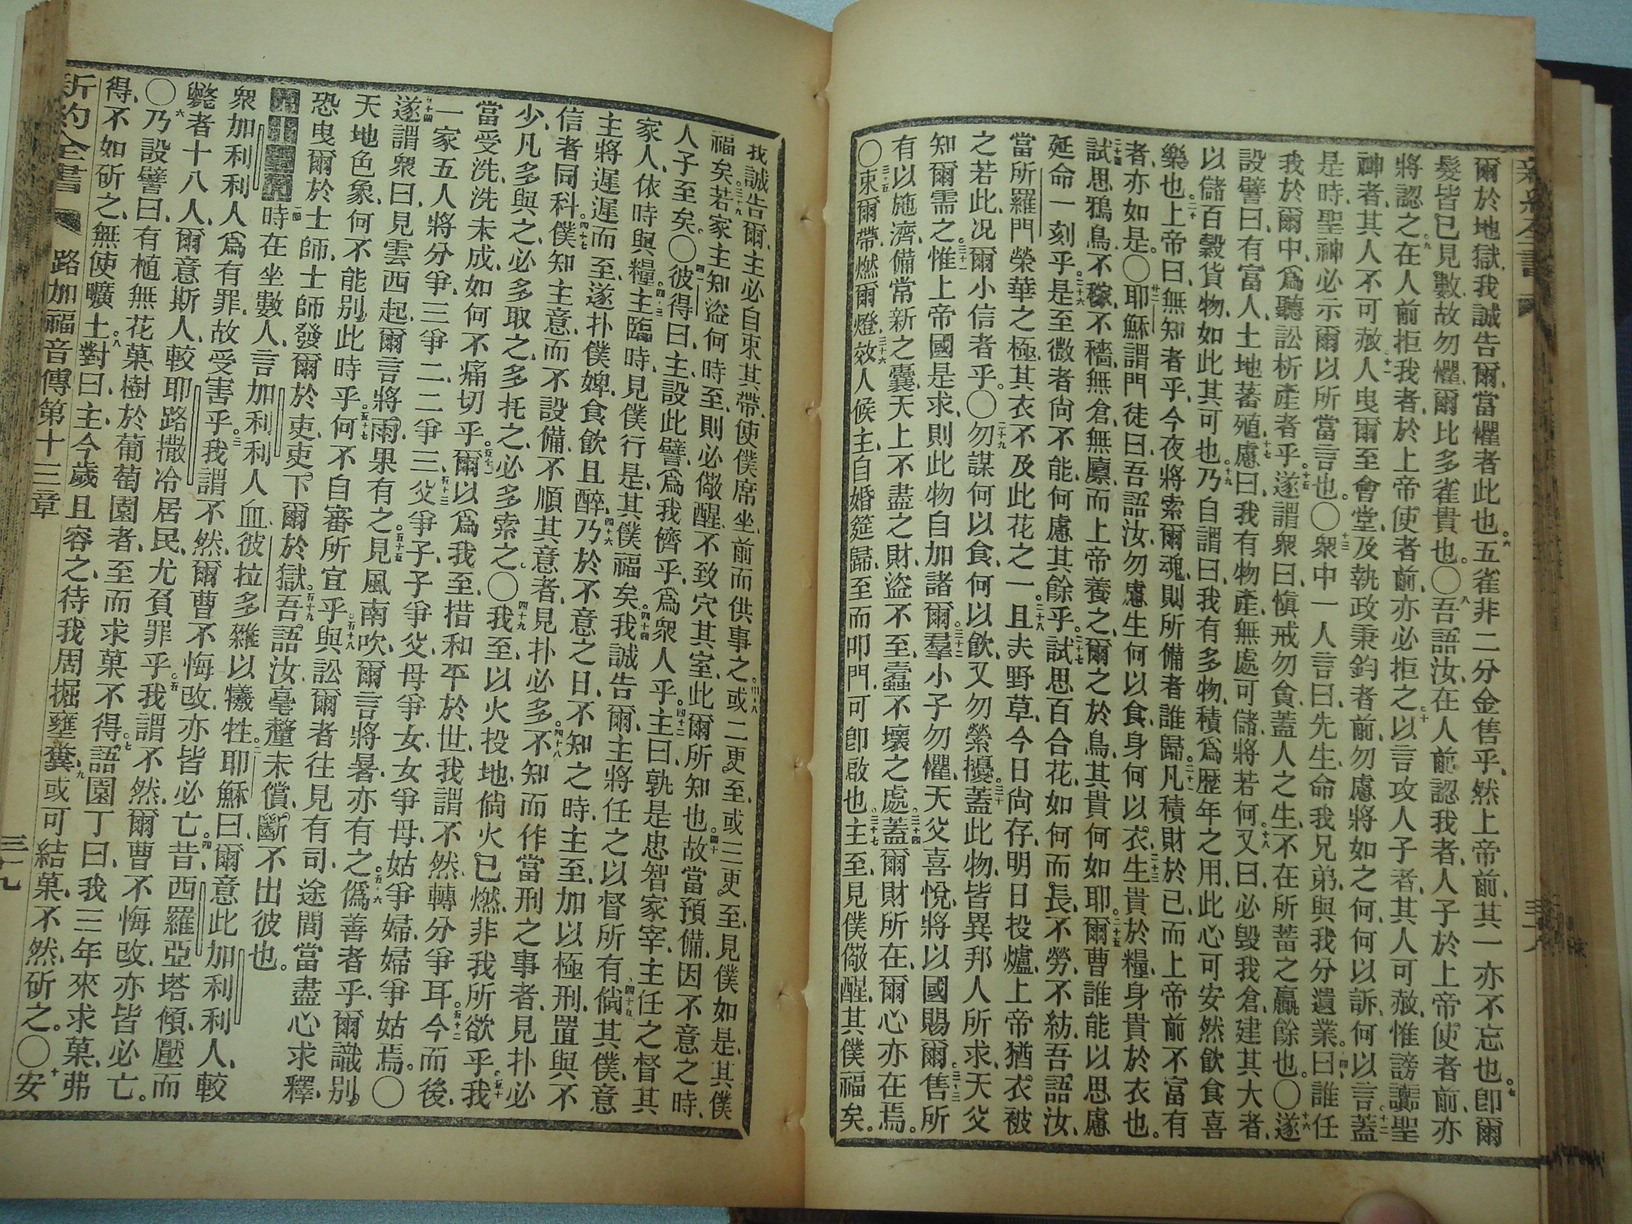 爾於地獄、我誠告爾、當懼者此也。五雀非二分金售乎、然上帝前、其一亦不忘也。卽爾
髮皆已見數、故勿懼、爾比多雀貴也。〇吾語汝、在人前認我者、人子於上帝使者前、亦
將認之、在人前拒我者、於上帝使者前、亦必拒之。以言攻人子者、其人可赦、惟謗讟聖
神者、其人不可赦。人曳爾至會堂、及執政秉鈞者前、勿慮將如之何、何以訴、何以言、蓋
是時聖神必示爾以所當言也。〇衆中一人言曰、先生命我兄弟、與我分遺業。曰、誰任
我於爾中、爲聽訟析產者乎。遂謂衆曰、愼戒勿貪、蓋人之生、不在所蓄之贏餘也。〇遂
設譬曰、有富人、土地蕃殖、慮曰、我有物產、無處可儲、將若何。又曰、必毀我倉、建其大者、
以儲百穀貨物、如此其可也。乃自謂曰、我有多物、積爲歷年之用、此心可安然飲食喜
樂也。上帝曰、無知者乎、今夜將索爾魂、則所備者誰歸。凡積財於已、而上帝前不富有
者亦如是。〇耶穌謂門徒曰、吾語汝、勿慮生何以食、身何以衣、生貴於糧、身貴於衣也。
試思鴉鳥、不稼不穡、無倉無廩、而上帝養之、爾之於鳥、其貴何如耶。爾曹誰能以思慮
延命一刻乎。是至微者尙不能、何慮其餘乎。試思百合花、如何而長、不勞不紡、吾語汝、
當所羅門榮華之極、其衣不及此花之一。且夫野草、今日尙存、明日投爐、上帝猶衣被
之若此、况爾小信者乎。〇勿謀何以食、何以飲、又勿縈擾。蓋此物皆異邦人所求、天父
知爾需之。惟上帝國是求、則此物自加諸爾。羣小子勿懼、天父喜悅、將以國賜爾。售所
有以施濟、備常新之囊、天上不盡之財、盜不至、蠹不壞之處。蓋爾財所在、爾心亦在焉。
〇束爾帶、燃爾燈、效人候主、自婚筵歸、至而叩門、可卽啟也。主至、見僕儆醒、其僕福矣。
我誠告爾、主必自束其帶、使僕席坐、前而供事之。或二更至、或三更至、見僕如是、其僕
福矣。若家主知盜何時至、則必儆醒、不致穴其室、此爾所知也。故當預備、因不意之時、
人子至矣。〇彼得曰、主設此譬、爲我儕乎、爲衆人乎。主曰、孰是忠智家宰、主任之督其
家人、依時與糧、主臨時、見僕行是、其僕福矣。我誠告爾、主將任之以督所有。倘其僕意
主將遲遲而至、遂扑僕婢、食飲且醉、乃於不意之日、不知之時、主至、加以極刑、置與不
信者同科。僕知主意、而不設備、不順其意者、見扑必多。不知而作當刑之事者、見扑必
少。凡多與之、必多取之、多托之、必多索之。〇我至以火投地、倘火已燃、非我所欲乎。我
當受洗、洗未成、如何不痛切乎。爾以爲我至措和平於世、我謂不然、轉分爭耳。今而後、
一家五人將分爭、三爭二、二爭三、父爭子、子爭父、母爭女、女爭母、姑爭婦、婦爭姑焉。〇
遂謂衆曰、見雲西起、爾言將雨、果有之。見風南吹、爾言將暑、亦有之。僞善者乎、爾識別
天地色象、何不能別此時乎。何不自審所宜乎。與訟爾者往見有司、途間當盡心求釋、
恐曳爾於士師、士師發爾於吏、吏下爾於獄。吾語汝、毫釐未償、斷不出彼也。
第十三章 時在坐數人、言加利利人血、彼拉多雜以犧牲、耶穌曰、爾意此加利利人、較
衆加利利人爲有罪、故受害乎。我謂不然、爾曹不悔改、亦皆必亡。昔西羅亞塔傾、壓而
斃者十八人、爾意斯人、較耶路撒冷居民、尤負罪乎。我謂不然、爾曹不悔改、亦皆必亡。
〇乃設譬曰、有植無花菓樹於葡萄園者、至而求菓不得。語園丁曰、我三年來求菓、弗
得、不如斫之、無使曠土。對曰、主、今歲且容之、待我周掘壅糞、或可結菓、不然、斫之。〇安
新約全書 路加福音傳第十三章 三十九